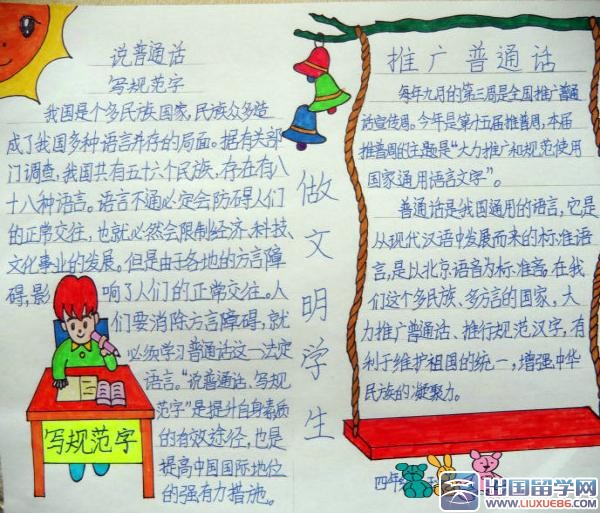 说普通话
写规范字
我国是个多民族国家,民族众多造
成了我国多种语言并存的局面。据有关部
门调查,我国共有五十六个民族,存在有八
十八种语言。语言不通必定会防碍人们
的正常交往,也就必然会限制经济、科技、
文化事业的发展。但是由于各地的方言障
碍,影响了人们的正常交往。人
们要消除方言障碍,就
必须学习普通话这一法定
语言。“说普通话、写规
范字”是提升自身素质
的有效途径,也是
提高中国国际地位
的强有力措施。
写规范字
做文明学生
推广普通话
每年九月的第三周是全国推广普通
话宣传周。今年是第十五届推普周,本届
推普周的主题是“大力推广和规范使用
国家通用语言文字”。
普通话是我国通用的语言,它是
从现代汉语中发展而来的标准语
言,是以北京语音为标准音,在我
们这个多民族、多方言的国家,大
力推广普通话、推行规范汉字,有
利于维护祖国的统一,增强中华
民族的凝聚力。
四年
出国留学网
www.liuxue86.com